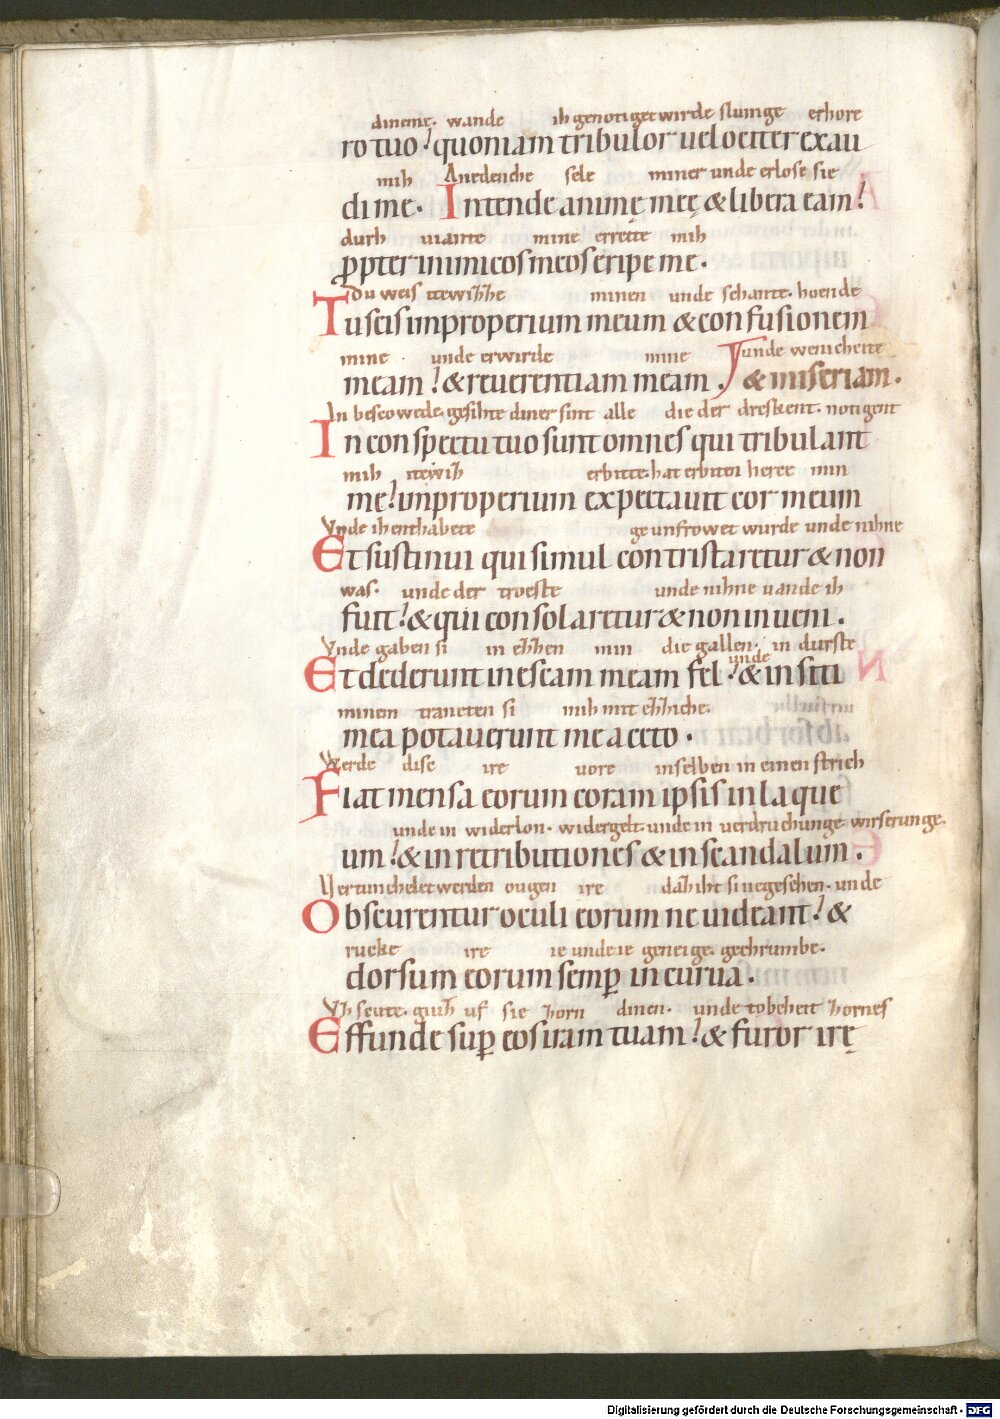 dineme. wande ih genotiget wirde slunige erhore
ro tuo quoniam tribulor uelociter exau
mih Anedenche sele miner unde erlose sie
di me. Intende animę meę & libera eam
durh uiante mine errette mih
ꝓpter inimicos meos eripe me.
Du weis itewizze minen unde schante. hoende
Tu scis improperium meum & confusionem
mine unde erwirde mine unde wenicheite
meam & reuerentiam meam. & miseriam.
In bescowede. gesihte diner sint alle die der dreskent. notigent
In conspectu tuo sunt omnes qui tribulant
mih itewiz erbitte. hat erbiten herce min
me improperium expectauit cor meum
Vnde ih enthabete ge unfrowet wurde unde nihne
Et sustinui qui simul contristaretur & non
was. unde der troeste unde nihne uande ih
fuit & qui consolaretur & non inueni.
Vnde gaben si in ezzen min die gallen. in durste
unde
Et dederunt in escam meam fel & in siti
minem trancten si mih mit ezziche.
mea potauerunt me aceto.
Werde dise ire uore in selben in einen strich
Fiat mensa eorum coram ipsis in laque
unde in widerlon. widergelt. unde in uerdruchunge. wirserunge.
um & in retributiones & in scandalum.
Vertunchelet werden ougen ire daz iht si negesehen. unde
Obscurentur oculi eorum ne uideant &
rucke ire ie unde ie geneige. gechrumbe.
dorsum eorum semꝑ incurua.
Vz scute. giuz uf sie zorn dinen. unde tobeheit zornes
Effunde suꝑ eos iram tuam & furor irę
Digitalisierung gefördert durch die Deutsche Forschungsgemeinschaft - DFG